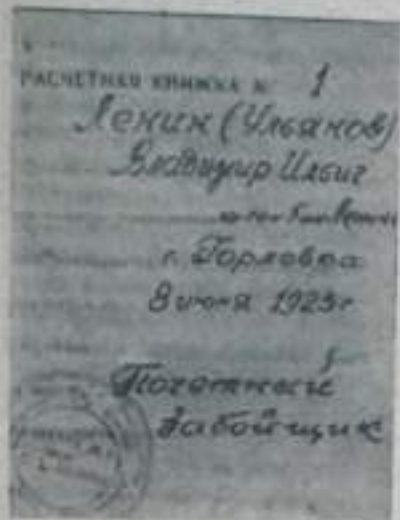 РАСЧЕТНАЯ КНИЖКА № 1
Ленин (Ульянов)
Владимир Ильич
г. Горловка
1923г
Почетный
Забойщик